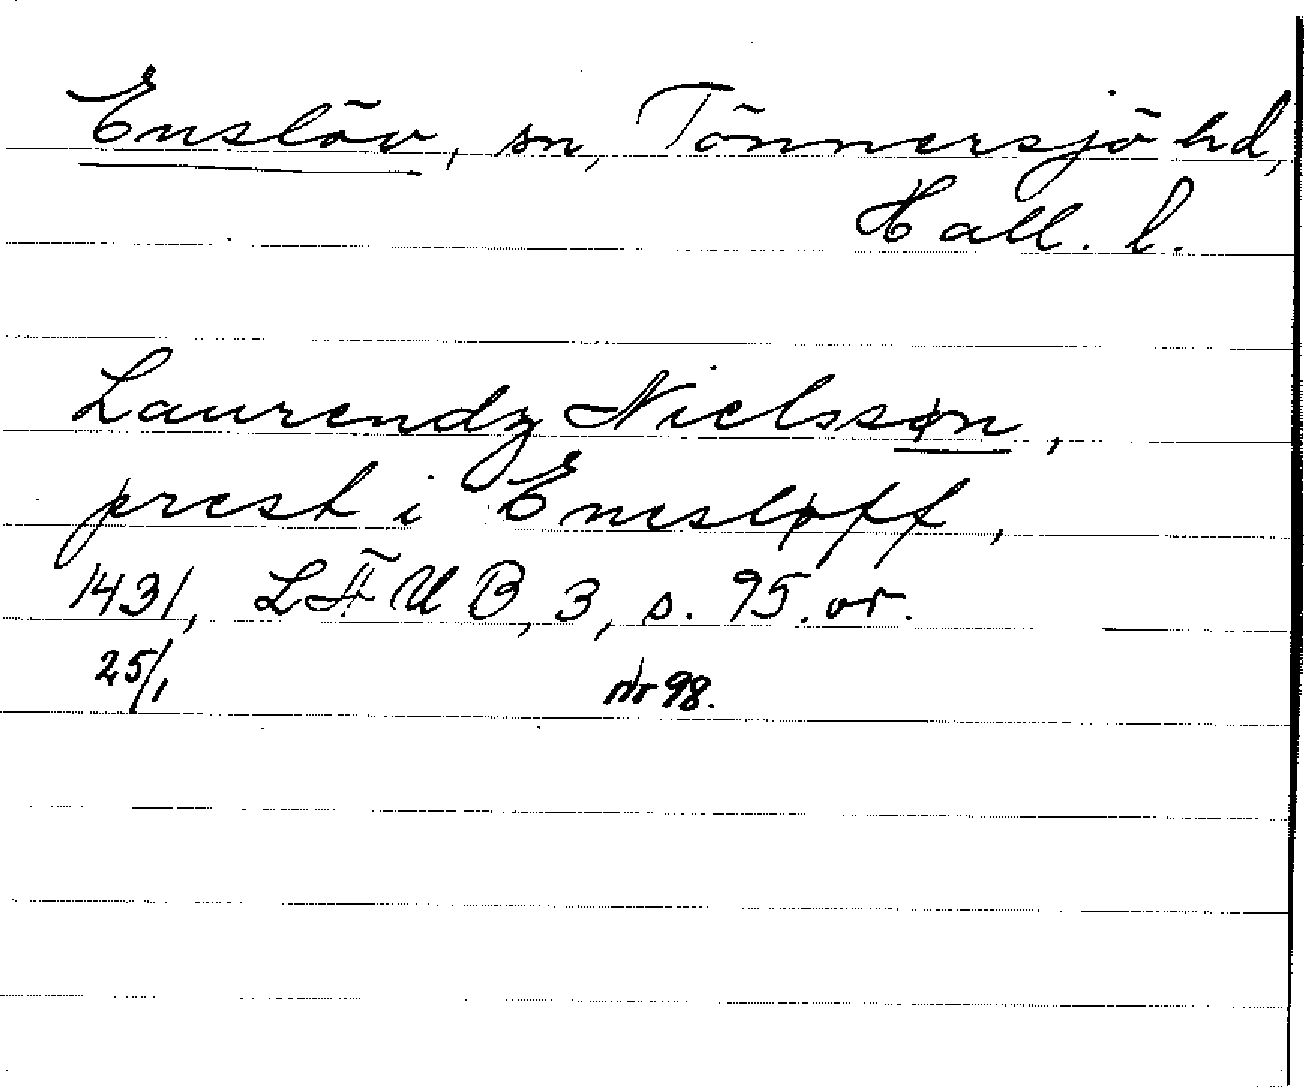 Enslöv, sn, Tönnersjö hd,
Hall. l.
Laurendz Nielssøn,
prest i Enesløff,
1431, LÄUB, 3, s. 95. or.
25/1 nr 98.